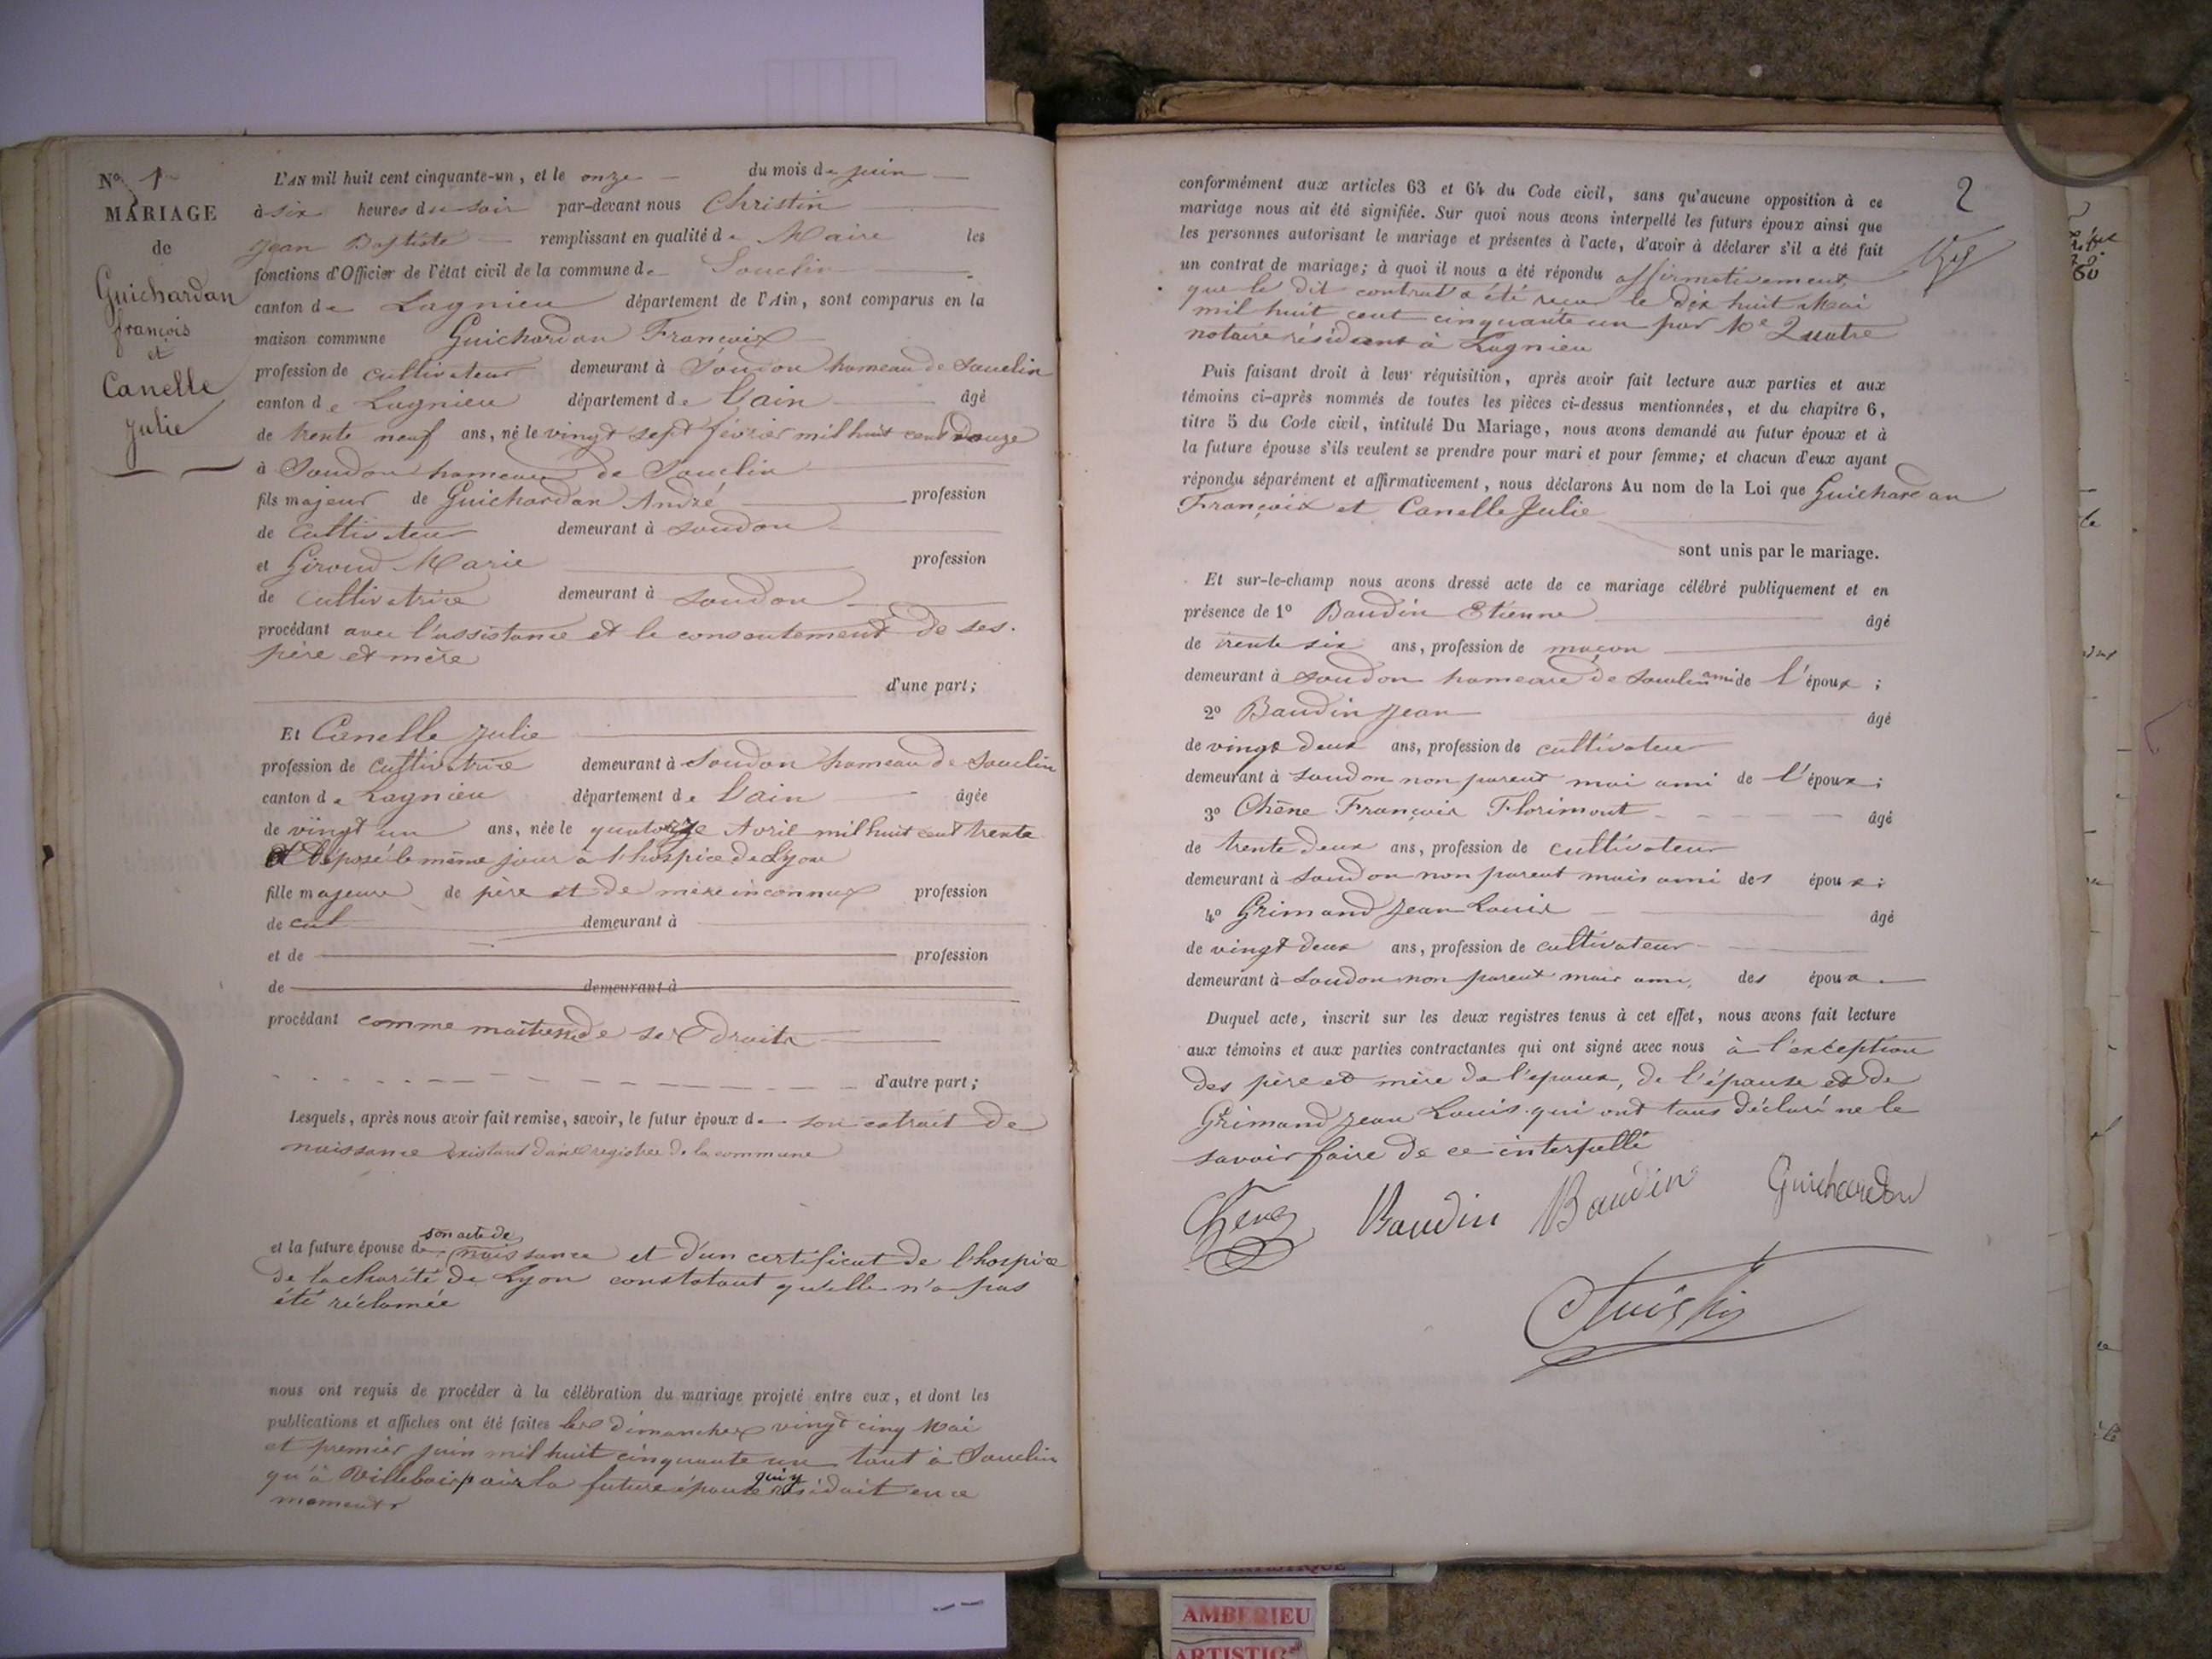 N° 1
MARIAGE
de
Guichardan
françois
et
Canelle
Julie
L'AN mil huit cent cinquante-un, et le onze du mois de juin
à six heures du soir par-devant nous Christin
Jean Baptiste remplissant en qualité de Maire les
fonctions d'Officier de l'état civil de la commune de Souclin
canton de Lagnieu département de l'Ain, sont comparus en la
maison commune Guichardan François
profession de cultivateur demeurant à Soudon hameau de Souclin
canton de Lagnieu département de l'ain âgé
de trente neuf ans, né le vingt sept février mil huit cent douze
à Soudon hameau de Souclin
fils majeur de Guichardan André profession
de Cultivateur demeurant à Soudon
et Giroud Marie profession
de cultivatrice demeurant à Soudon
procédant avec l'assistance et le consentement de ses
père et mère
d'une part;
Et Canelle Julie
profession de cultivatrice demeurant à Soudon hameau de Souclin
canton de Lagnieu département de l'ain âgée
de vingt un ans, née le quatorze Avril mil huit cent trente
et déposé le même jour à l'hospice de Lyon
fille majeure de père et de mère inconnus profession
de cul demeurant à
et de profession
de demeurant à
procédant comme maitresse de ses droits
d'autre part;
Lesquels, après nous avoir fait remise, savoir, le futur époux de son extrait de
naissance existant dans registres de la commune
et la future épouse de son acte de naissance et d'un certificat de l'hospice
de la charité de Lyon constatant qu'elle n'a pas
été réclamée
nous ont requis de procéder à la célébration du mariage projeté entre eux, et dont les
publications et affiches ont été faites les dimanches vingt cinq Mai
et premier juin mil huit cinquante un tant à Souclin
qu'à Villebois pour la future épouse qui y résidait en ce
moment
2
conformément aux articles 63 et 64 du Code civil, sans qu'aucune opposition à ce
mariage nous ait été signifiée. Sur quoi nous avons interpellé les futurs époux ainsi que
les personnes autorisant le mariage et présentes à l'acte, d'avoir à déclarer s'il a été fait
un contrat de mariage; à quoi il nous a été répondu affirmativement
que le dit contrat a été reçu le dix huit Mai
mil huit cent cinquante un par Me Quatre
notaire résidant à Lagnieu
Puis faisant droit à leur réquisition, après avoir fait lecture aux parties et aux
témoins ci-après nommés de toutes les pièces ci-dessus mentionnées, et du chapitre 6,
titre 5 du Code civil, intitulé Du Mariage, nous avons demandé au futur époux et à
la future épouse s'ils veulent se prendre pour mari et pour femme; et chacun d'eux ayant
répondu séparément et affirmativement, nous déclarons Au nom de la Loi que Guichardan
François et Canelle Julie
sont unis par le mariage.
Et sur-le-champ nous avons dressé acte de ce mariage célébré publiquement et en
présence de 1° Baudin Etienne âgé
de trente six ans, profession de maçon
demeurant à Soudon hameau de Souclin ami de l'époux;
2° Baudin Jean âgé
de vingt deux ans, profession de cultivateur
demeurant à Soudon non parent mai ami de l'époux;
3° Chêne François Florimont âgé
de trente deux ans, profession de cultivateur
demeurant à Soudon non parent mais ami des époux;
4° Grimand Jean Louis âgé
de vingt deux ans, profession de cultivateur
demeurant à Soudon non parent mais ami des époux
Duquel acte, inscrit sur les deux registres tenus à cet effet, nous avons fait lecture
aux témoins et aux parties contractantes qui ont signé avec nous à l'exception
des père et mère de l'époux, de l'épouse et de
Grimand Jean Louis qui ont tous déclaré ne le
savoir faire de ce interpellé
Chene Baudin Baudin Guichardan
Christin
AMBERIEU